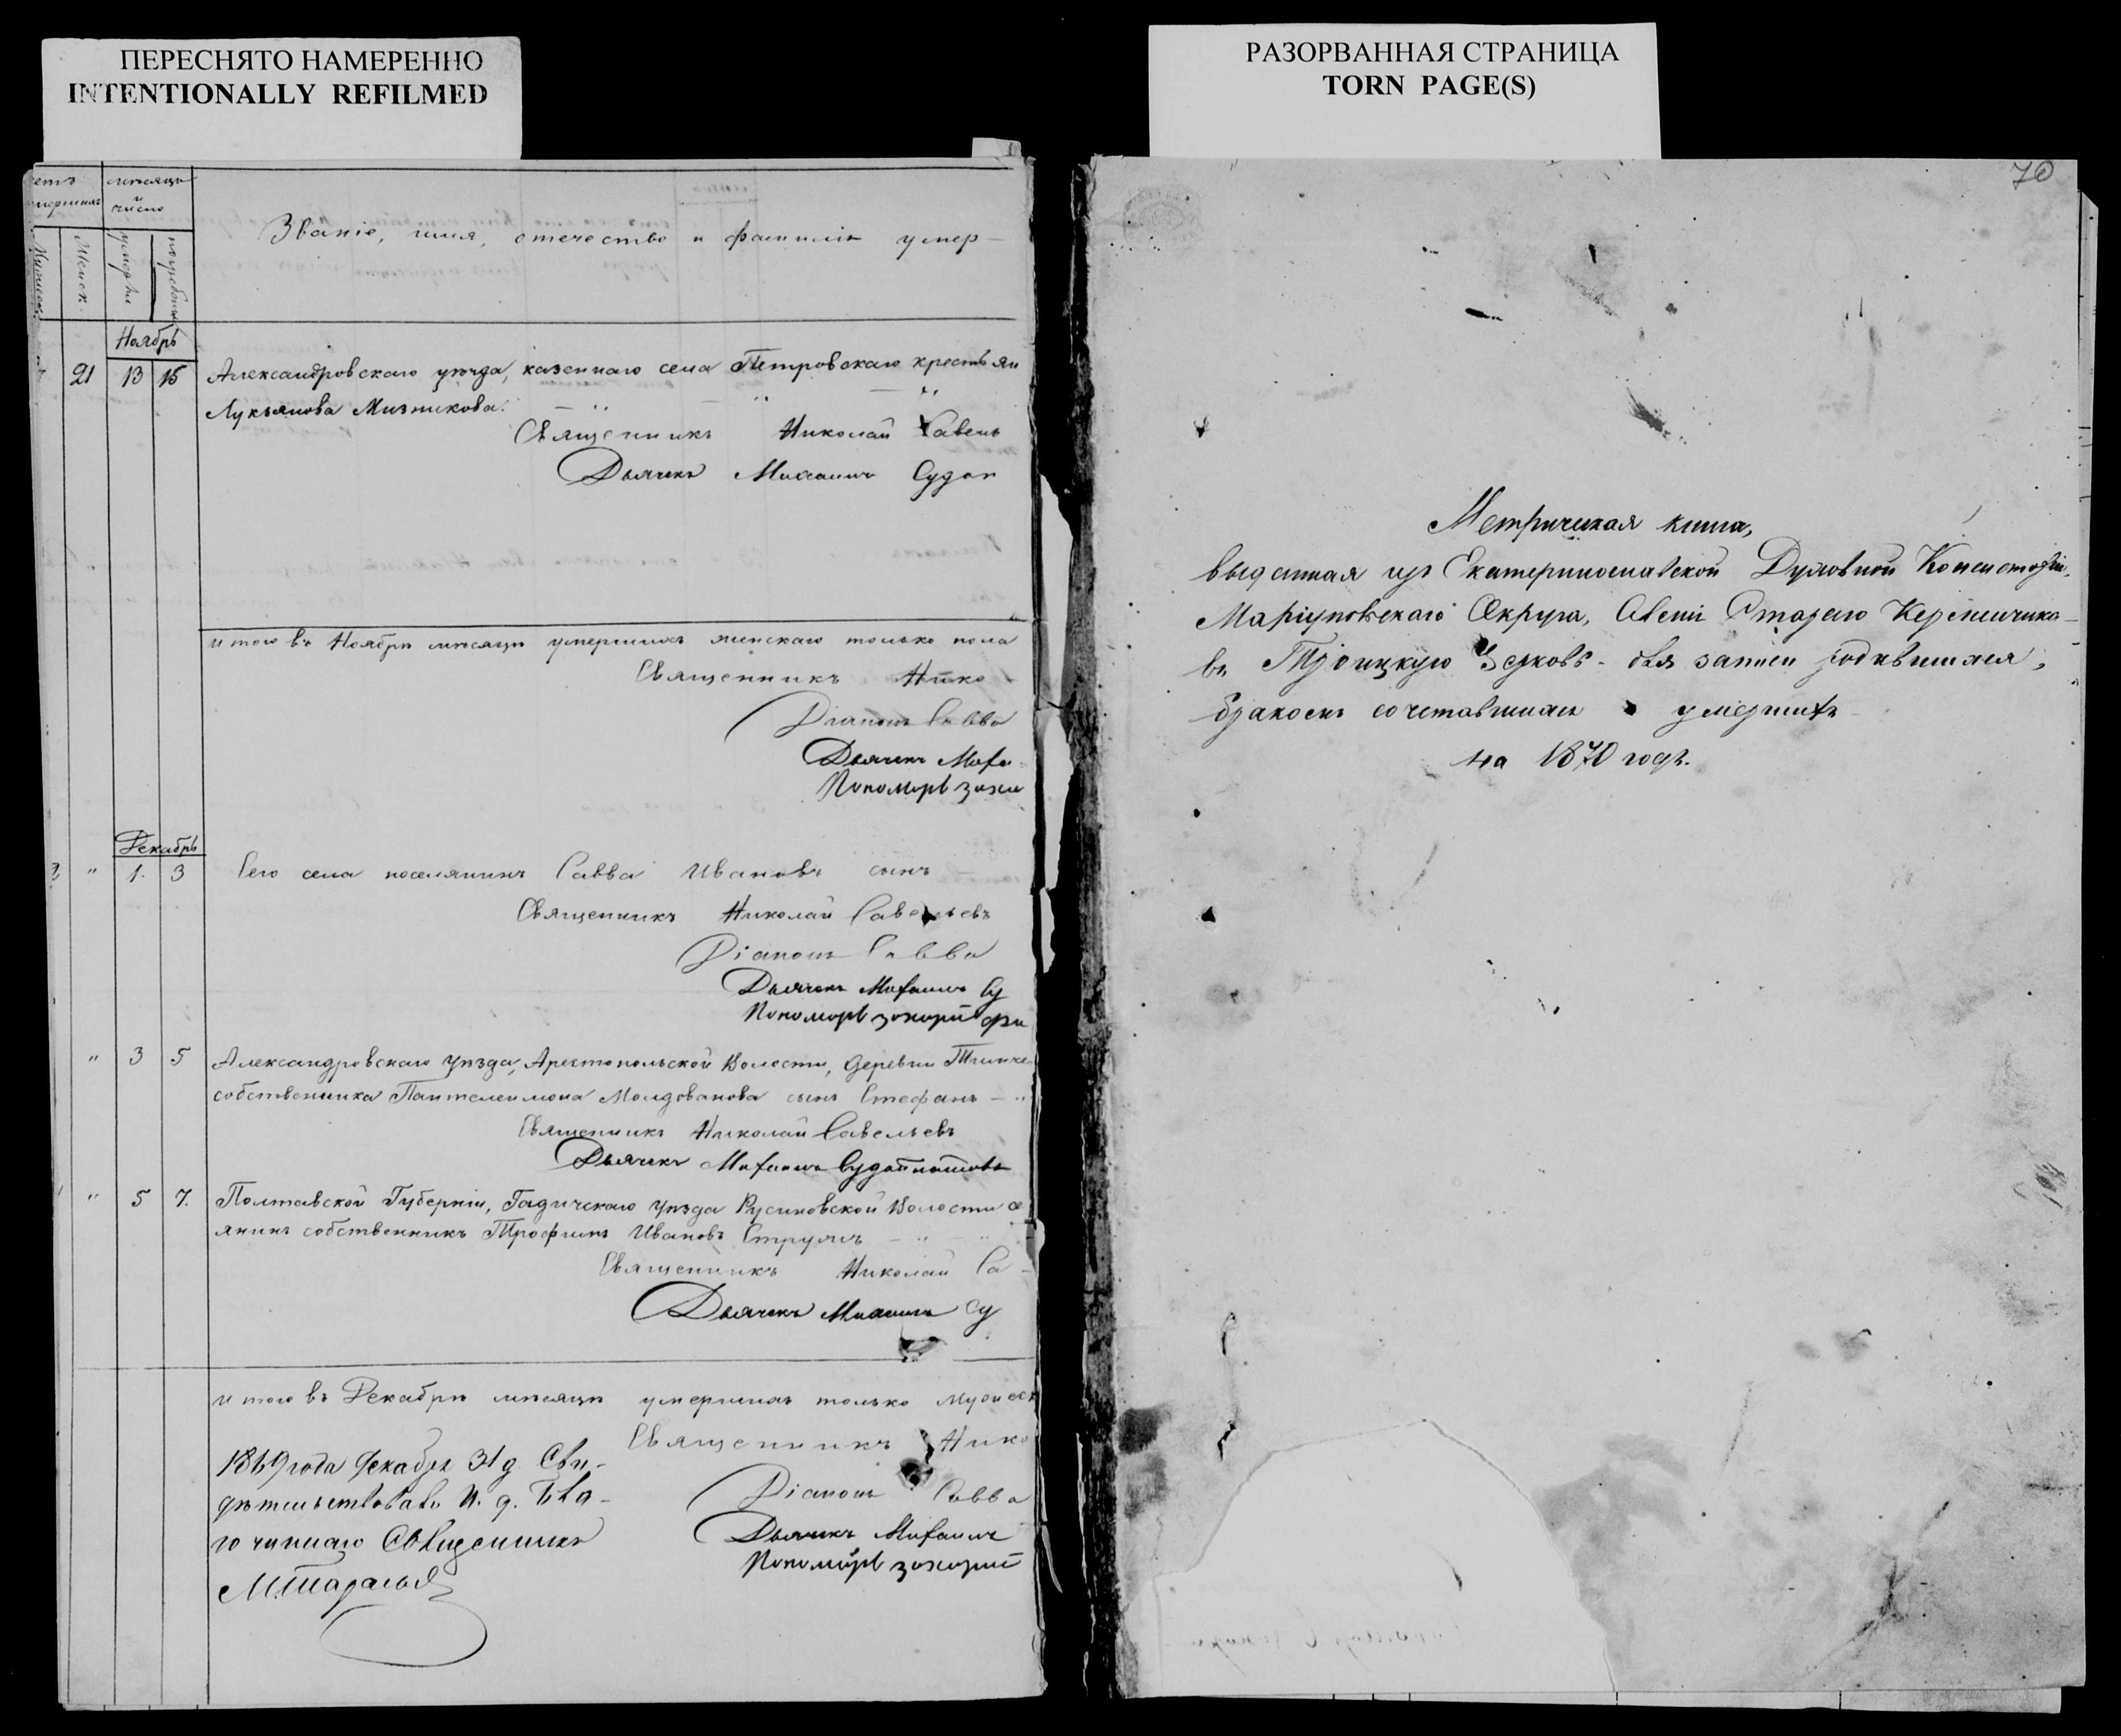 ПЕРЕСНЯТО НАМЕРЕННО
INTENTIONALLY REFILMED
РАЗОРВАННАЯ СТРАНИЦА
TORN PAGE(S)
мѣсяцъ
и
число
Женск.
Званіе, имя, отечество и фамилія умер-
Ноябрь
21 13 15 Александровскаго уѣзда, казеннаго села Петровскаго крестьян
Лукьянова Мизникова.
Священникъ Николай Савель
Дьячекъ Михаилъ Судак
итого въ Ноябрѣ мѣсяцѣ умершихъ женскаго только пола
Священникъ Нико
Діаконъ Савва
Дьячекъ Миха
Пономарь Заха
Декабрь
" 1. 3 Сего села поселянинъ Савва Ивановъ сынъ
Священникъ Николай Савельевъ
Діаконъ Савва
Дьячекъ Михаилъ Су
Пономарь Захарій
" 3 5 Александровскаго уѣзда, Волости, деревни
собственника Пантелеимона Молдованова сынъ Стефанъ
Священникъ Николай Савельевъ
Дьячекъ Михаилъ
" 5 7. Полтавской Губерніи, Гадичскаго уѣзда Русиновской Волости
янинъ собственникъ Трофимъ Ивановъ
Священникъ Николай Са
Дьячекъ Михаилъ Су
итого въ Декабрѣ мѣсяцѣ умершихъ только мужеск
Священникъ Нико
Діаконъ Савва
Дьячекъ Михаилъ
Пономарь Захарій
1869 года Декабря 31 д. Сви-
дѣтельствовалъ И. д. Бла-
гочиннаго Священникъ
70
Метрическая книга,
выданная изъ Екатеринославской Духовной Консисторіи,
Маріупольскаго Округа, Стараго Керменчика
въ Троицкую Церковь для записи родившихся,
бракомъ сочетавшихся и умершихъ
на 1870 годъ.